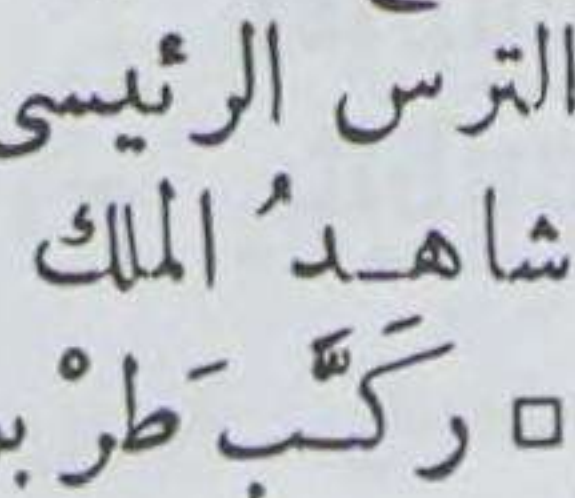 الترس الرئيسى
شاهدُ الملك
□ ركَّب طَرْ بو